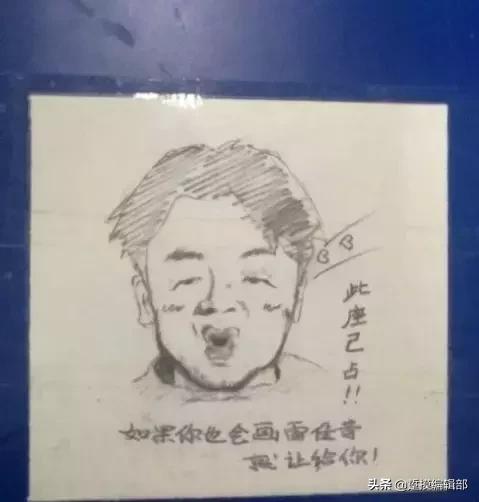 此座己占!!
如果你也会画雷佳音
就让给你!
头条 @
编辑部